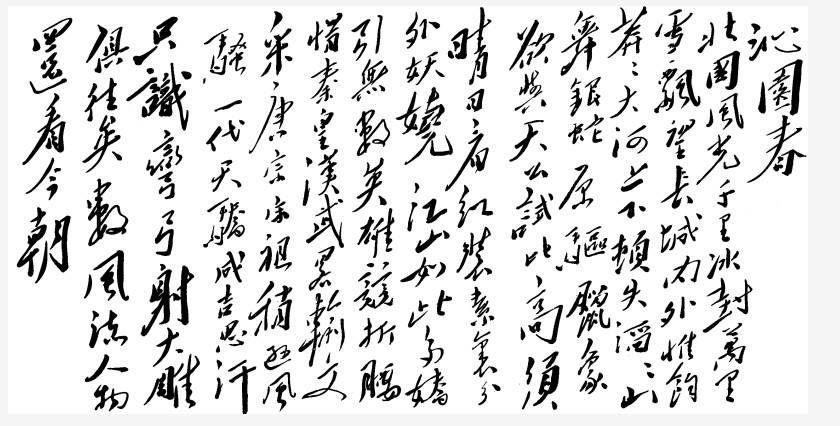 沁園春
北國風光千里冰封萬里
雪飄望長城內外惟餘
莽々大河上下頓失滔々山
舞銀蛇原驅臘象
欲與天公試比高須
晴日看紅裝素裹分
外妖嬈江山如此多嬌
引無數英雄競折腰
惜秦皇漢武畧輸文
采唐宗宋祖稍遜風
騷一代天驕成吉思汗
只識彎弓射大雕
俱往矣數風流人物
還看今朝